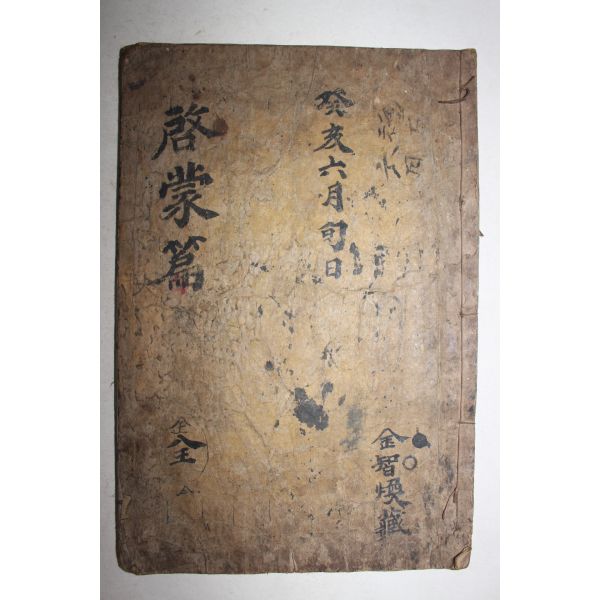 癸亥六月旬日
金智煥藏
啓蒙篇
全